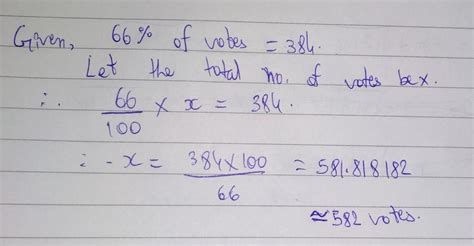 Given, 66% of votes = 384.
Let the total no. of votes be x.
∴ 66/100 × x = 384.
∴ - x = 384×100/66 = 581.818182
≃582 votes.